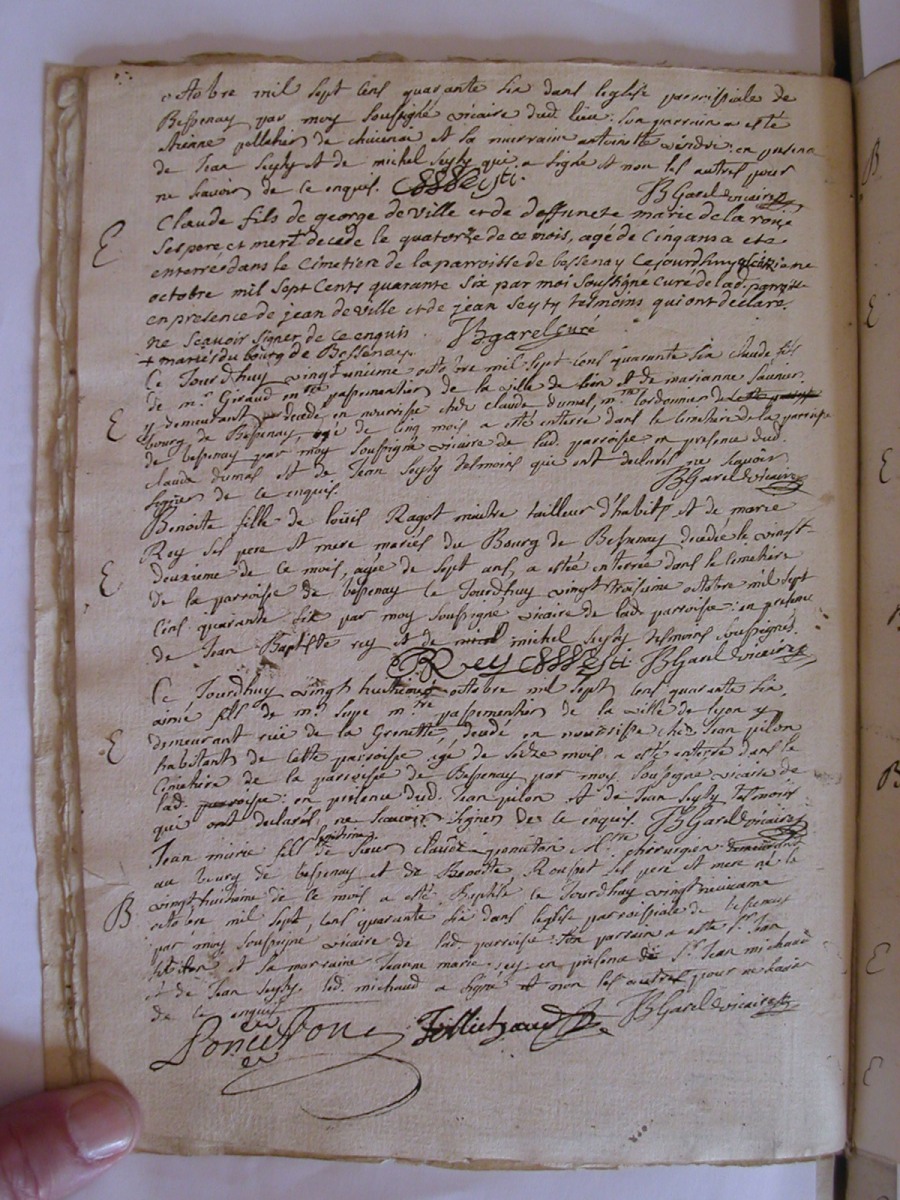 octobre mil sept cens quarante six dans leglise parroissiale de
Bessenay par moy soussigné vicaire dud. lieu: son parrain a esté
Etienne pelletier de et sa marraine antoinette en presence
de Jean Seyty et de michel Seyty qui a signé et non les autres pour
ne scavoir de ce enquis. Seyti. JBGarel vicaire
E Claude fils de george de ville et de deffuncte marie de la roue
ses pere et mere + decedé le quatorze de ce mois, agé de cinq ans a eté
enterré dans le cimetiere de la parroisse de bessenay ce jourdhuy
octobre mil sept cents quarante six par moi soussigné curé de lad. parroisse
en presence de jean de ville et de jean seyty tesmoins qui ont declaré
ne scavoir signer de ce enquis. JBgarel curé
+ mariés du bourg de Bessenay.
Ce Jourdhuy vingt unieme octobre mil sept cens quarante six claude fils
de mr. Giraud passementier de la ville de lion et de marianne
E y demeurant decedé en nourrisse chés claude dumas, mtre cordonnier
bourg de Bessenay, agé de cinq mois a esté enterré dans le cemetaire de la parroisse
de bessenay par moy soussigné vicaire de lad. parroisse en presence dud.
claude dumas et de Jean Seyty tesmoins qui ont declarés ne scavoir
signer de ce enquis. JBGarel vicaire
Benoite fille de loüis Ragot maitre tailleur d'habits et de marie
Rey ses pere et mere mariés du Bourg de Bessenay decedée le vingt
E deuxieme de ce mois, agée de sept ans, a estée enterrée dans le cimetiere
de la parroisse de bessenay ce Jourdhuy vingt troisieme octobre mil sept
cens quarante six par moy soussigné vicaire de lad. parroisse: en presence
de Jean Baptiste rey et de michel seyty tesmoins soussignés.
Rey Seyti JBGarel vicaire
Ce Jourdhuy vingt huitieme octobre mil sept cens quarante six,
aimé fils de mr. Supe mtre passementier de la ville de lyon y
E demeurant rüe de la Grenette, decedé en nourrisse chés Jean pilon
habitant de cette parroisse agé de seize mois a esté enterré dans le
Cimetiere de la parroisse de Bessenay par moy soussigné vicaire de
lad. parroisse: en presence dud. Jean pilon et de Jean Seyty tesmoins
qui ont declarés ne scavoir signer de ce enquis. JBGarel vicaire
Jean marie fils legitime de sieur claude mtre chirurgien demeurant
au bourg de bessenay et de Benoite Rousset ses pere et mere né le
vingt huitieme de ce mois a esté Baptisé ce Jourdhuy vingt neuvieme
B octobre mil sept cens quarante six dans leglise parroissiale de bessenay
par moy soussigné vicaire de lad. parroisse: son parrain a esté sr. Jean
et sa marraine Jeanne marie rey: en presence de sr. Jean michaud
et de Jean Seyty. led. michaud a signé et non les autres pour ne scavoir
de ce enquis JBGarel vicaire